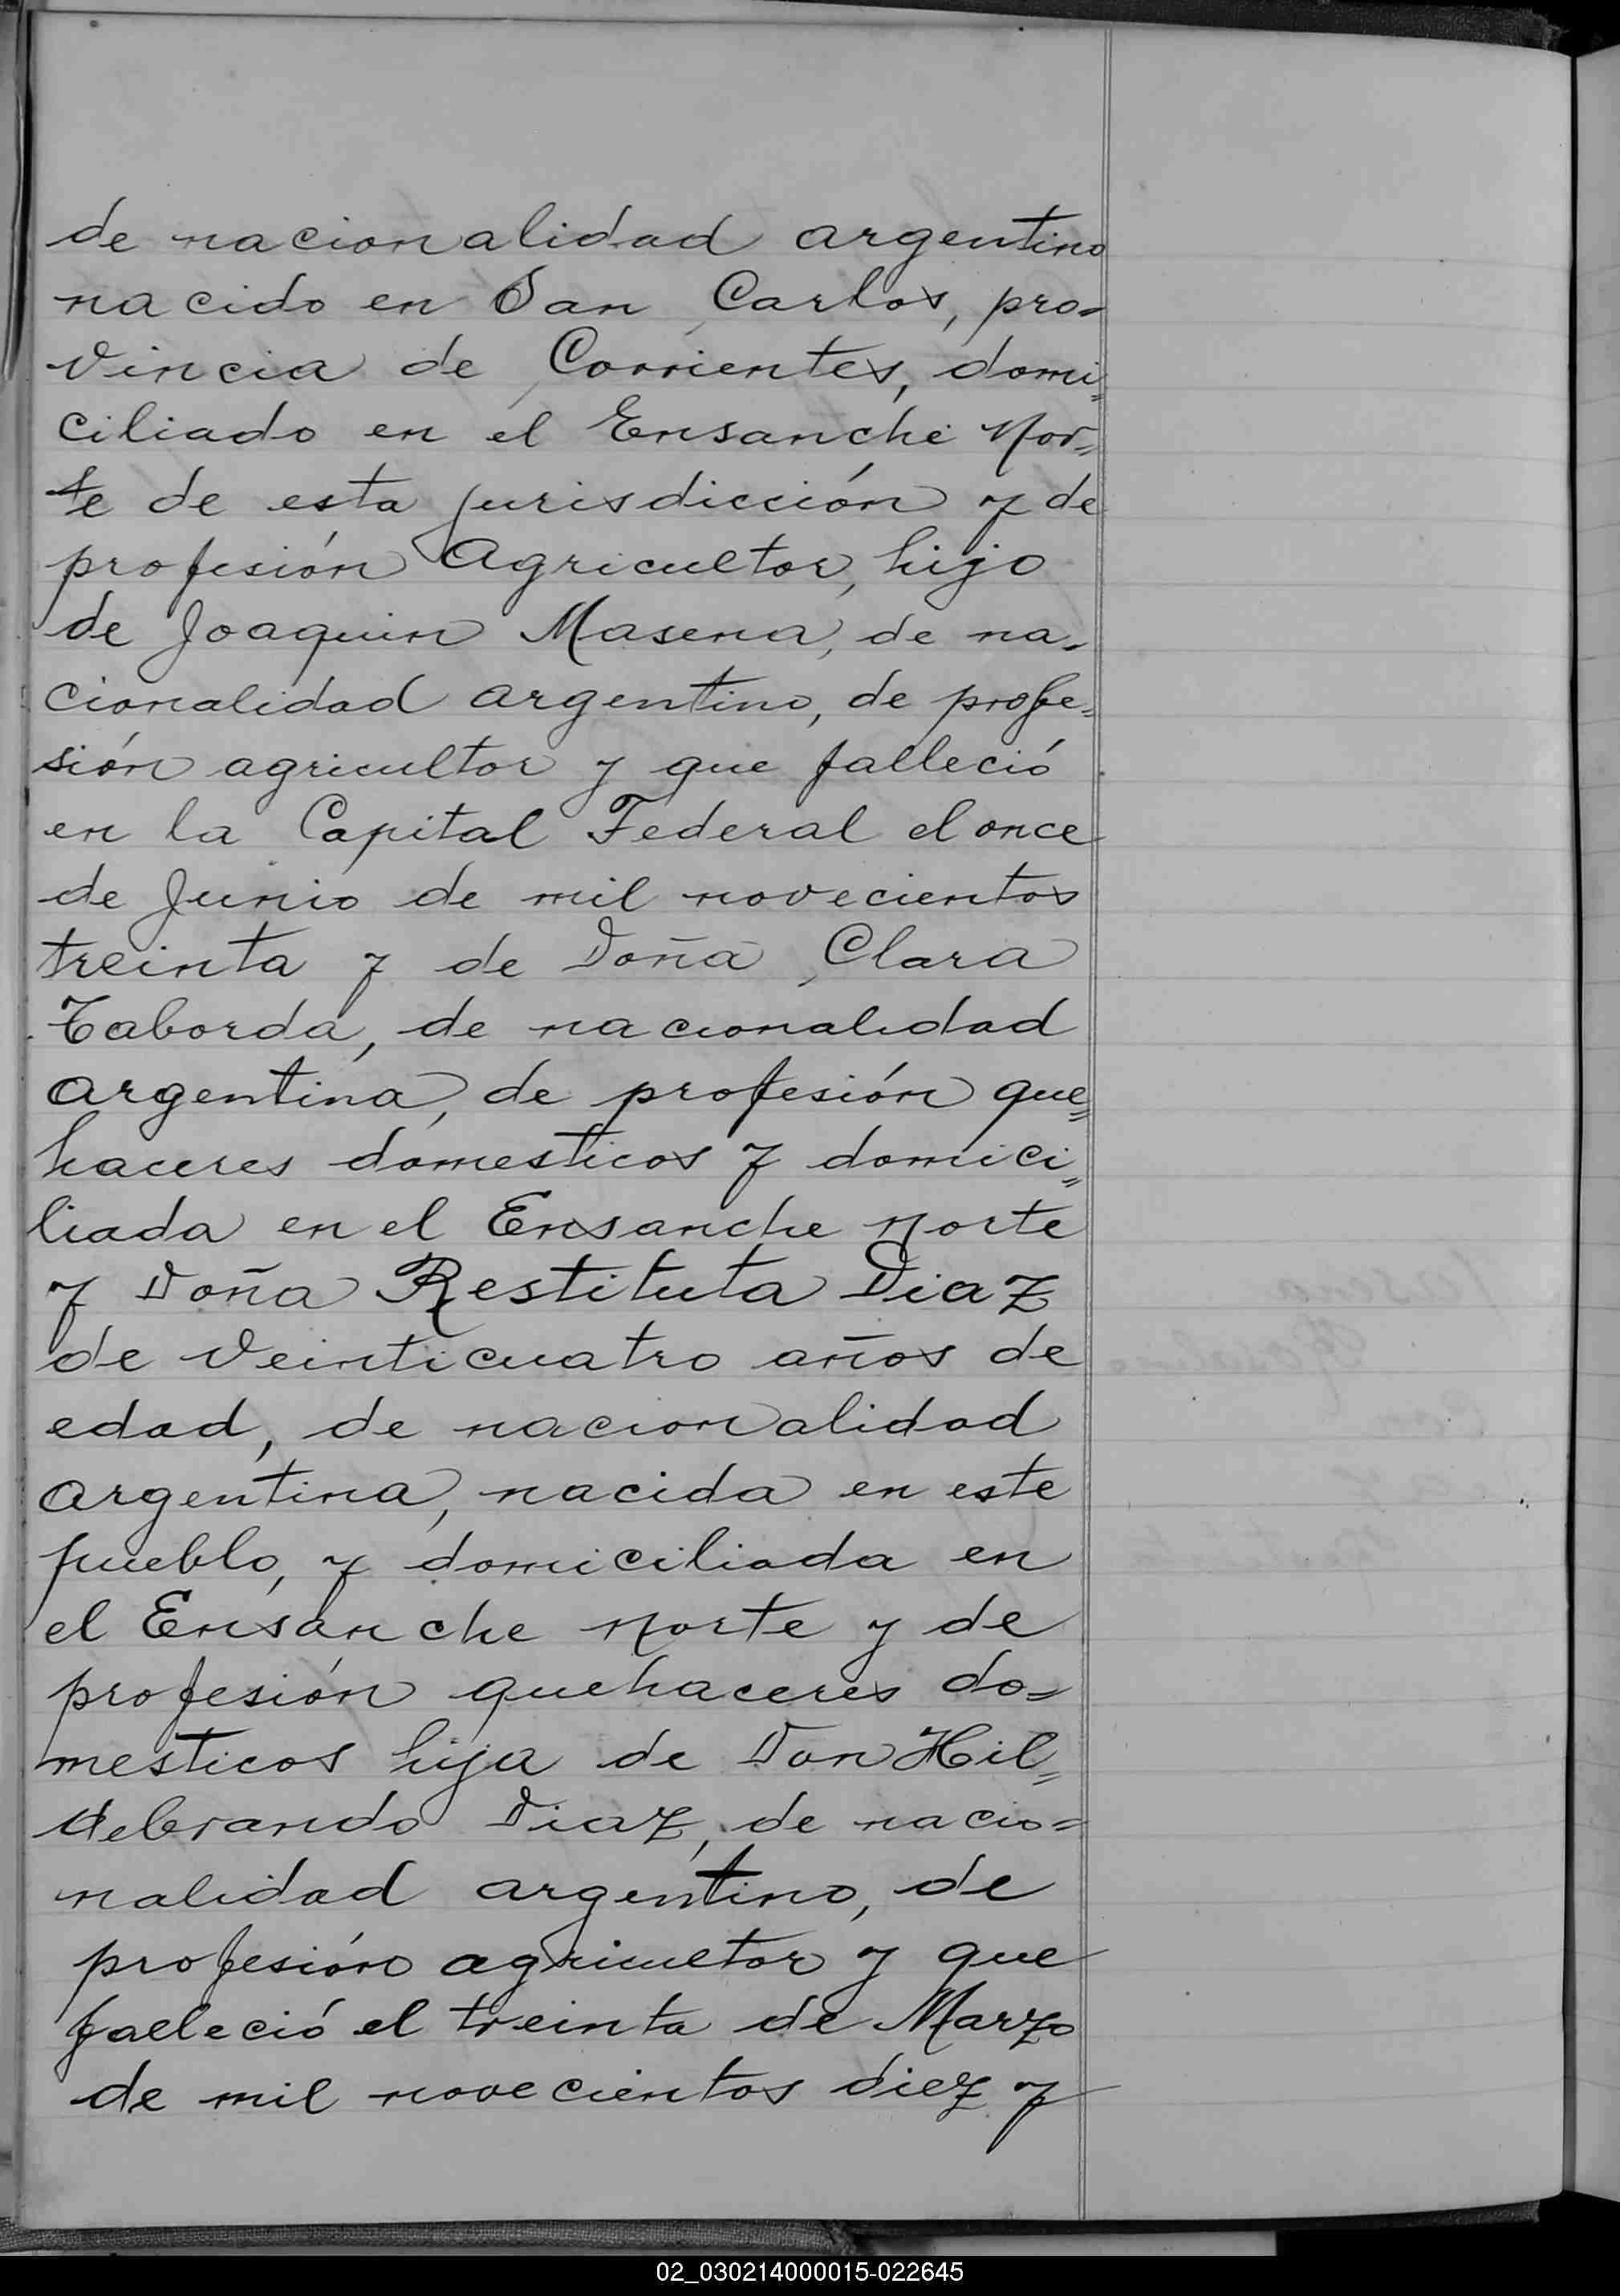 de nacionalidad argentino
nacido en San Carlos, pro=
vincia de Corrientes, domi=
ciliado en el Ensanche Nor=
te de esta jurisdicción y de
profesión Agricultor, hijo
de Joaquin Masena, de na=
cionalidad argentino, de profe=
sión agricultor y que falleció
en la Capital Federal el once
de Junio de mil novecientos
treinta y de Doña Clara
Taborda, de nacionalidad
argentina, de profesión que=
haceres domesticos y domici=
liada en el Ensanche Norte
y Doña Restituta Diaz
de veinticuatro años de
edad, de nacionalidad
argentina, nacida en este
pueblo, y domiciliada en
el Ensanche Norte y de
profesión quehaceres do=
mesticos hija de Don Hil=
debrando Diaz, de nacio=
nalidad argentino, de
profesión agricultor y que
falleció el treinta de Marzo
de mil novecientos diez y
02_030214000015-022645